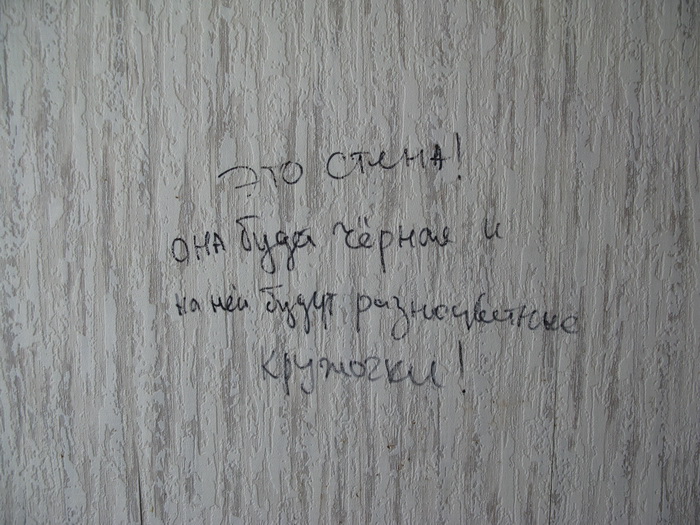 ЭТО СТЕНА!
ОНА будет чёрная и
на ней будут разноцветные
кружочки!